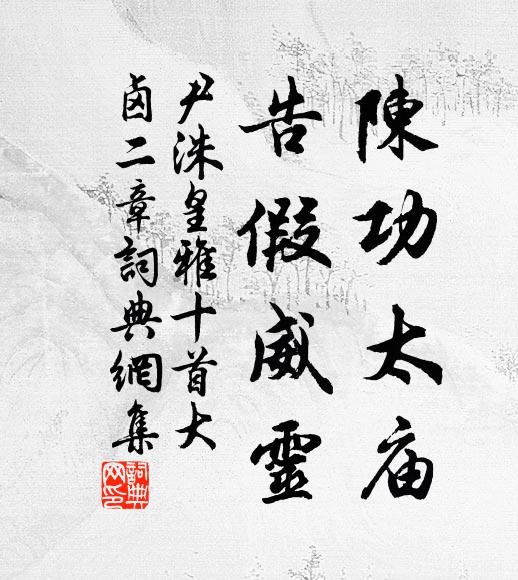 陳功太庙
告假威靈
尹洙皇雅十首大
鹵二章詞典網集
詞典网印